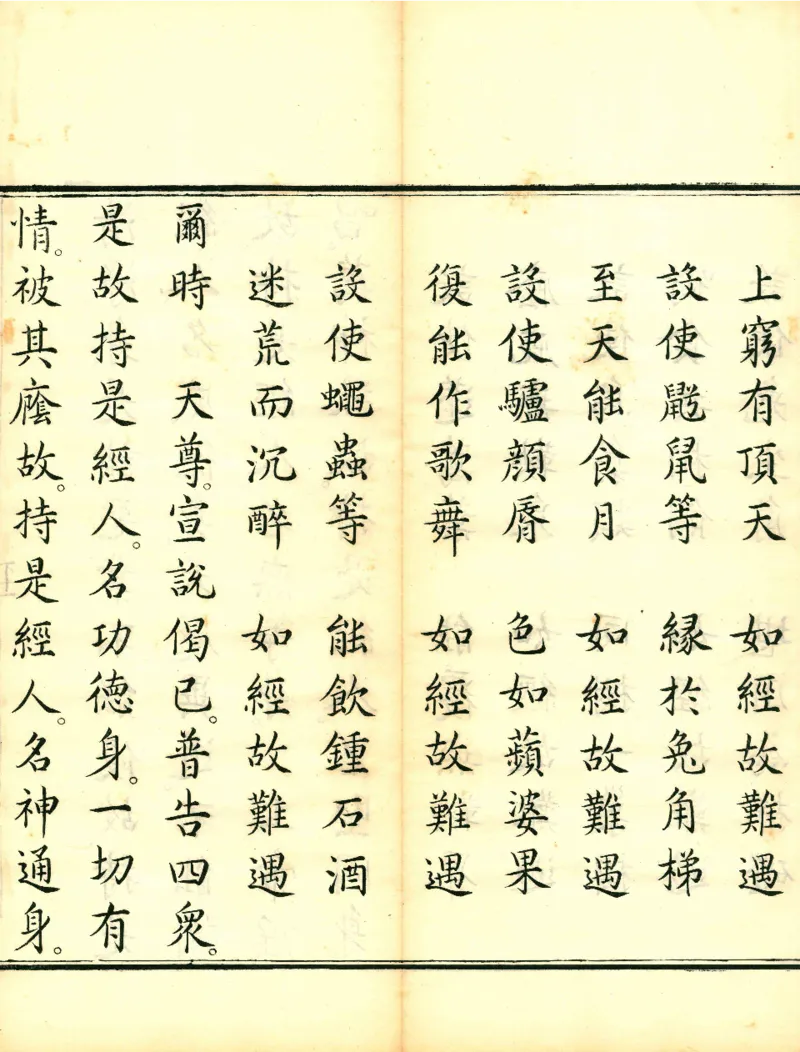 上窮有頂天　如經故難遇
設使鼷鼠等　緣於兔角梯
至天能食月　如經故難遇
設使驢顏脣　色如蘋婆果
復能作歌舞　如經故難遇
設使蠅蟲等　能飲鍾石酒
迷荒而沉醉　如經故難遇
爾時　天尊。宣說偈已。普告四眾。
是故持是經人。名功德身。一切有
情。被其廕故。持是經人。名神通身。